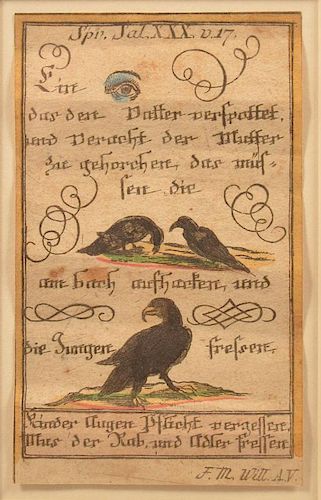 Spr. Sal. XXX. v. 17.
Ein
das den Vatter verspottet,
und veracht der Mutter
zu gehorchen, das müs-
sen die
am bach aushacken, und
die Jungen fressen.
Kinder Augen Pflicht vergessen,
Mus der Rab, und Adler fressen
F. M. Will. A.V.